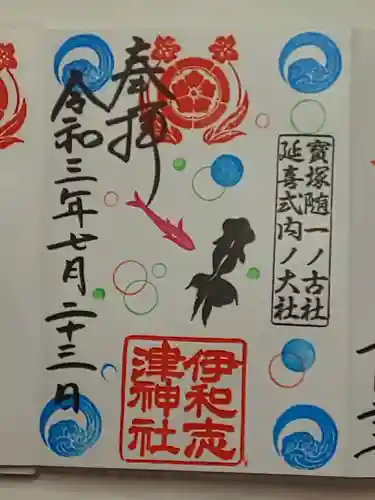 寳塚随一ノ古社
延喜式内ノ大社
奉拝
伊和志
津神社
令和三年七月二十三日